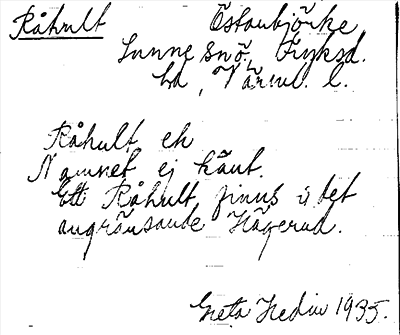 Råhult Östanbjörke
Sunne snö. Fryksd.
hd, Värml. l.
Råhult eh
Namnet ej känt.
Ett Råhult finns i det
angränsande Hägerud.
Greta Hedin 1935.